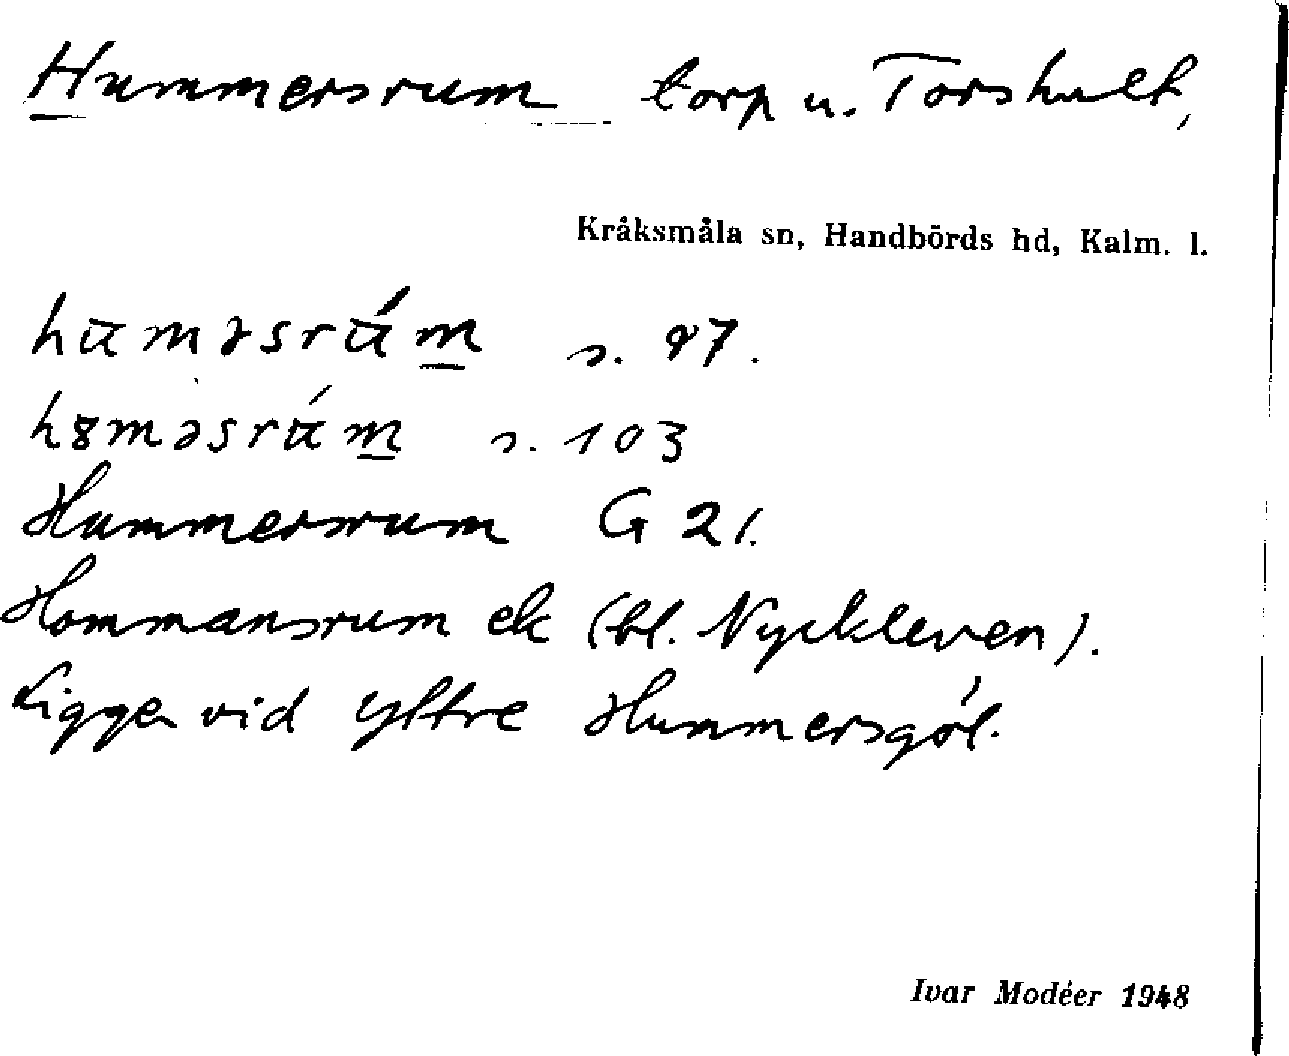 Hummersrum torp u. Torshult,
Kråksmåla sn, Handbörds hd, Kalm. l.
hɯməsrɯ́m s. 87.
hȣməsrɯ́m s. 103
Hummersrum G 21.
Hommansrum ek (bl. Nyckleven).
Ligger vid Yttre Hummersgöl.
Ivar Modéer 1948